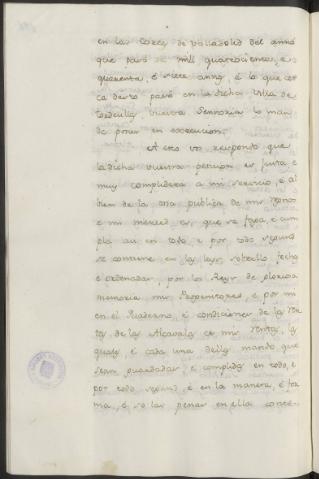 en las Cortes de Valladolid del anno
que pasó de mill, quatrocientos, e
quarenta, é siete annos, é lo que cer
ca desto pasó en la dicha Villa de
Tordesillas, vuestra Sennoria lo man
de poner en execucion.
A esto vos respondo que
la dicha vuestra peticion es justa e
muy complidera a mi servicio, é al
bien de la cosa publica de mis Regnos
e mi merced es, que se faga, e cum
pla asi en todo, e por todo segund
se contiene en las leyes sobrello fechas
e ordenadas, por los Reyes de gloriosa
memoria mis Progenitores, e por mi
en el Quaderno, é condiciones de las ren
tas de las Alcavalas de mis rentas, las
quales é cada una dellas mando que
sean guardadas, e complidas en todo, e
por todo segund, é en la manera, é for
ma, é so las penas en ella conte-